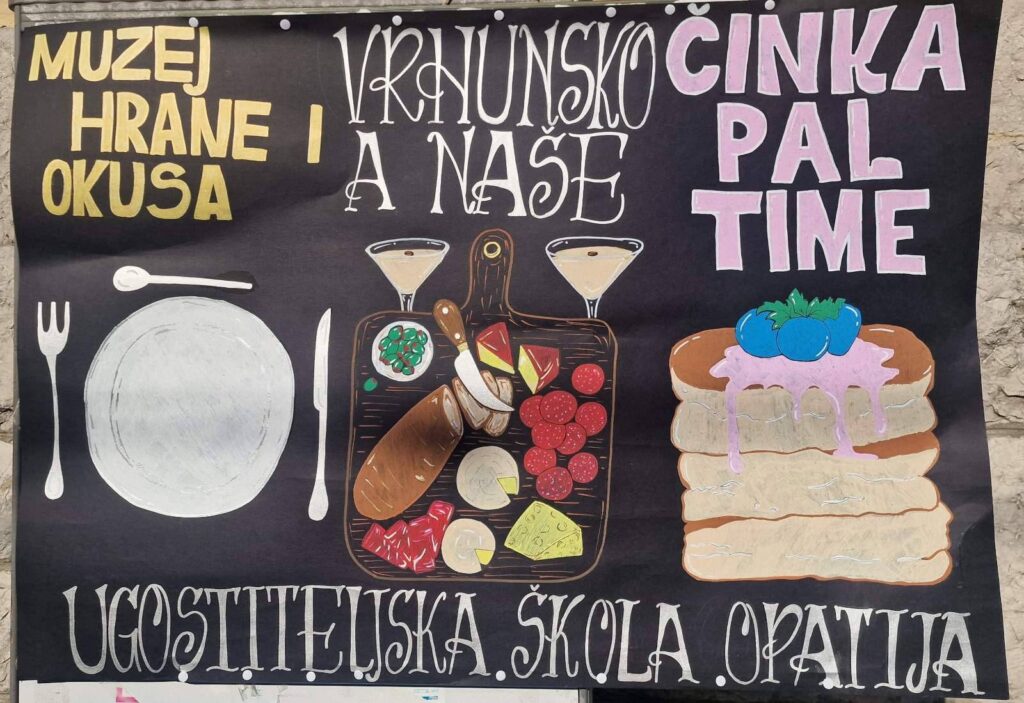 MUZEJ
HRANE I
OKUSA
VRHUNSKO
A NAŠE
ČINKA
PAL
TIME
UGOSTITELJSKA ŠKOLA OPATIJA